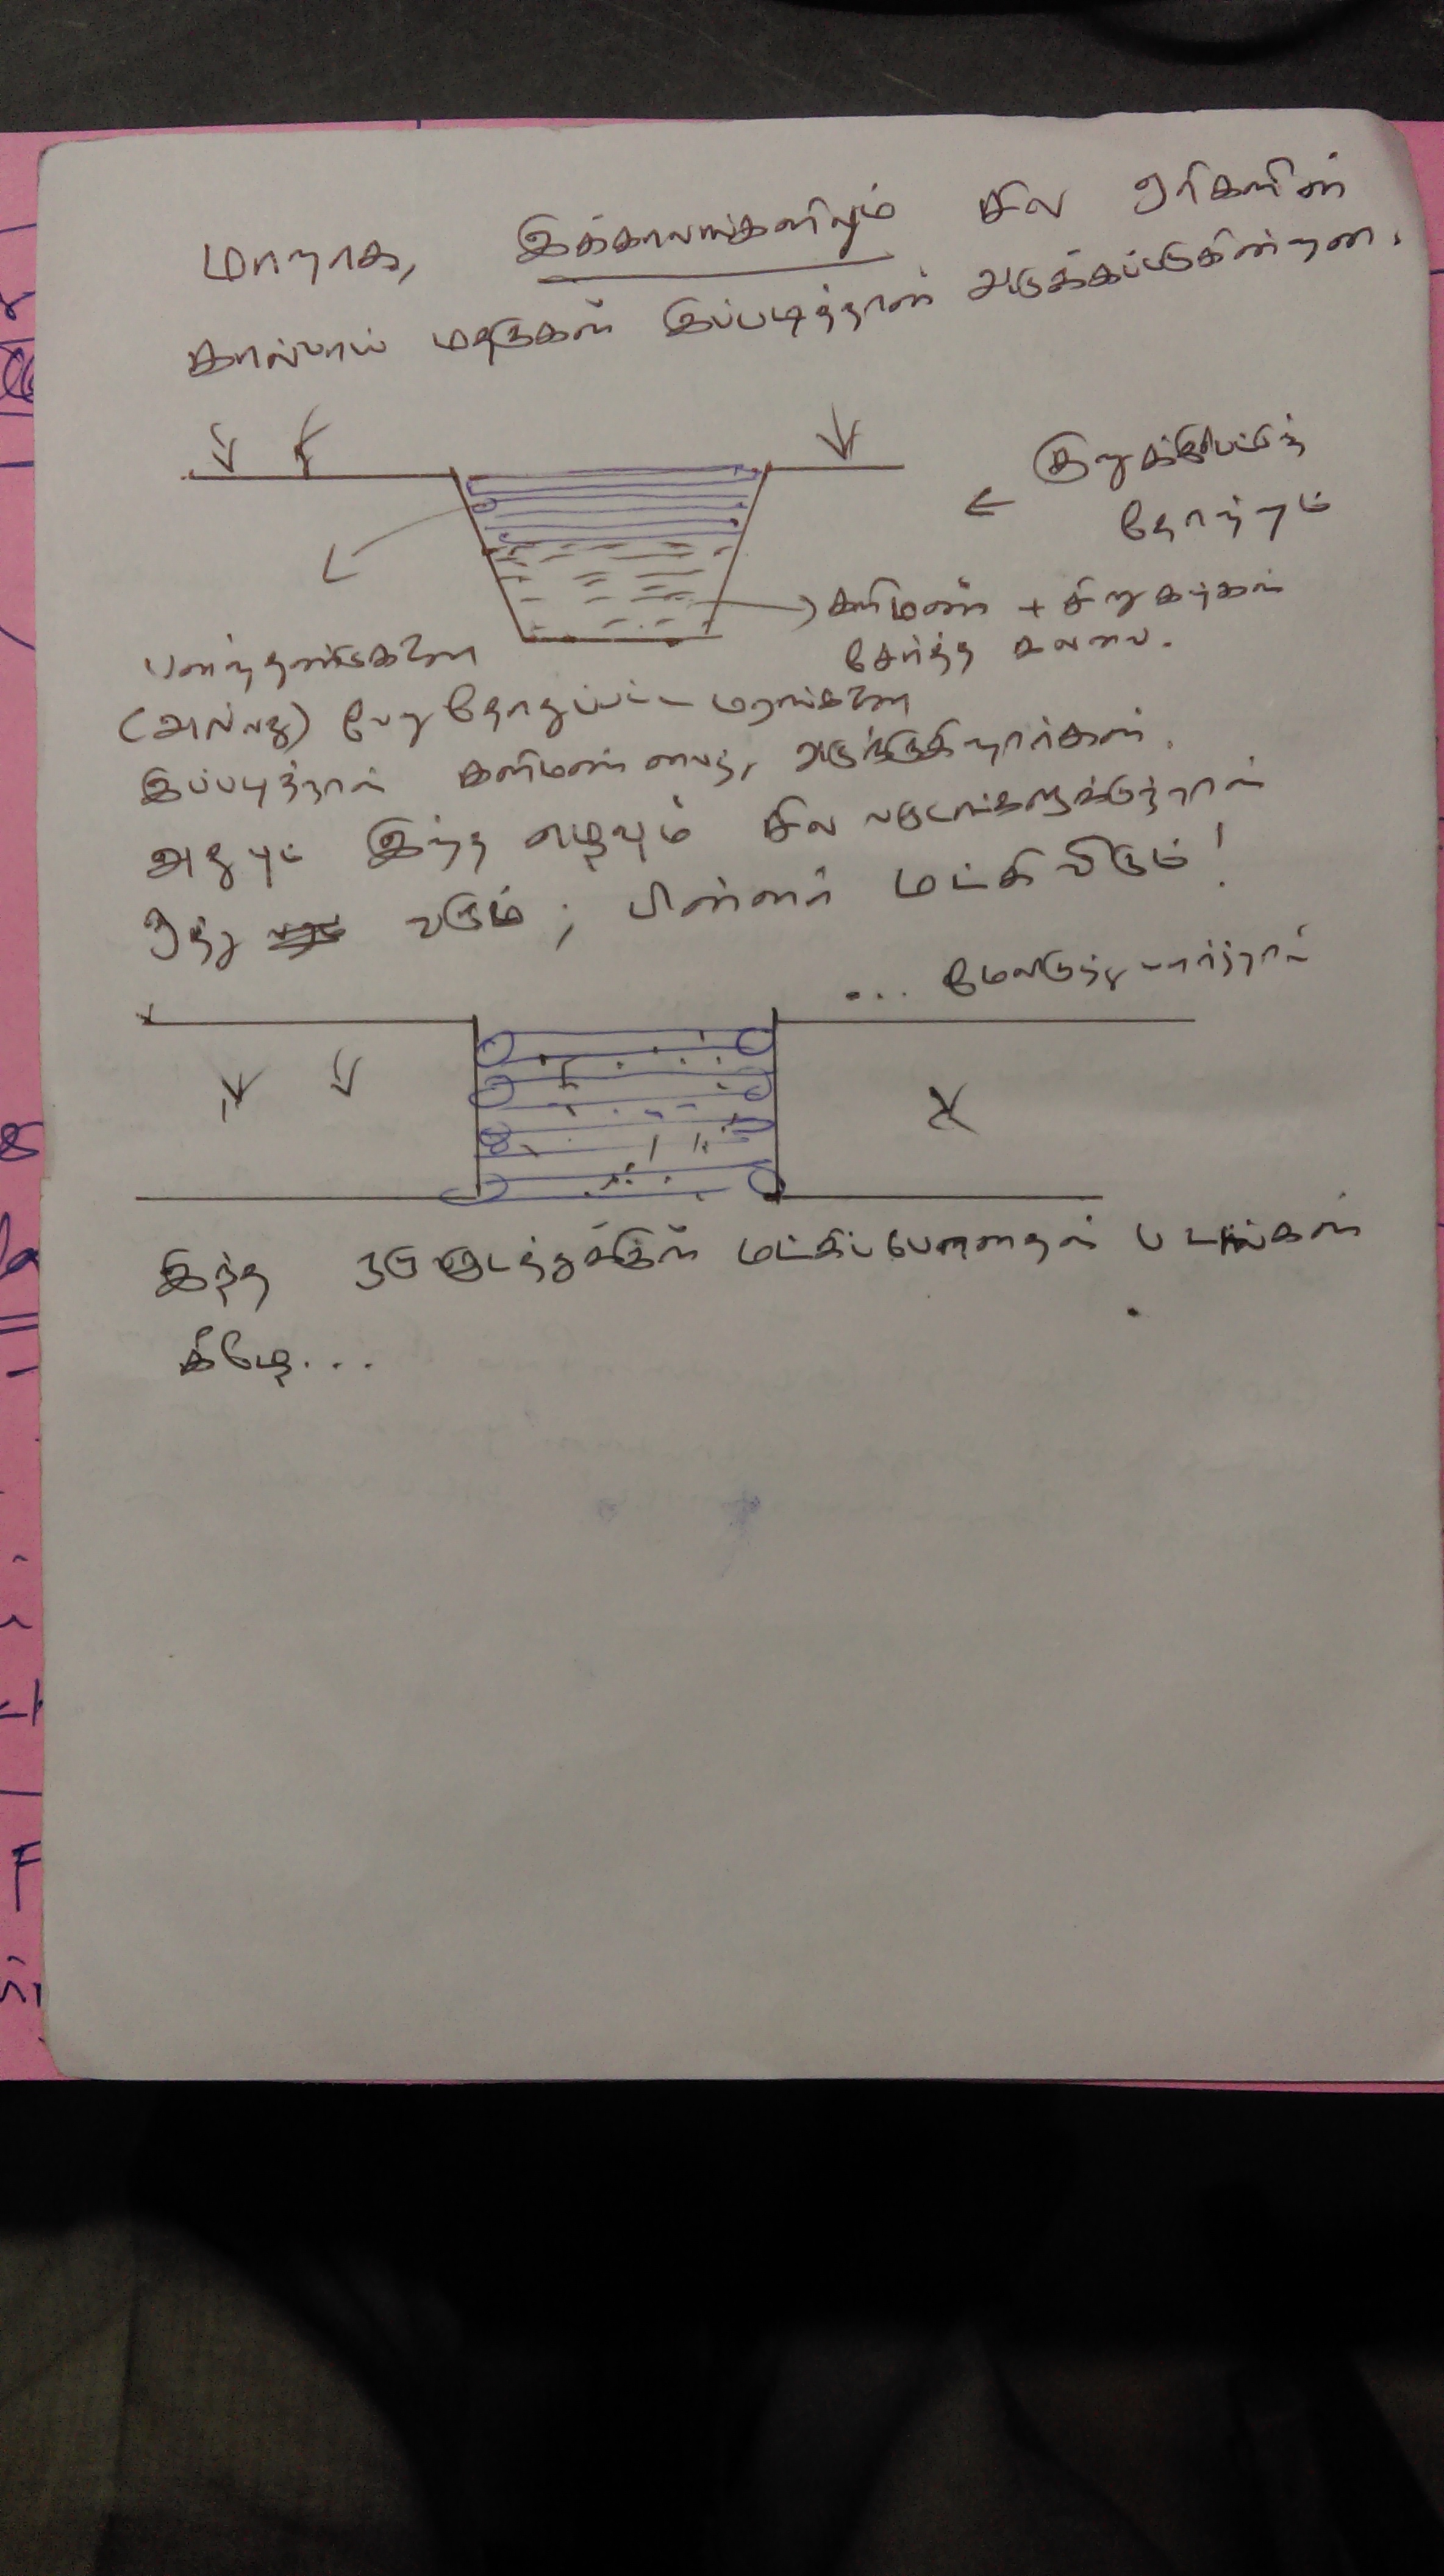 மாறாக, இக்காலங்களிலும் சில ஏரிகளின்
கால்வாய் மதகுகள் இப்படித்தான் அடுக்கப்படுகின்றன.
குறுக்குவெட்டுத்
தோற்றம்
களிமண் + சிறுகற்கள்
சேர்த்த கலவை.
பனந்தண்டுகளை
(அல்லது) வேறு தோதுப்பட்ட மரங்களை
இப்படித்தான் களிமண் வைத்து, அடுக்குகிறார்கள்.
அதுவும் இந்த எழவும் சில வருடங்களுக்குத்தான்
ஒத்து வரும்; பின்னர் மட்கிவிடும்!
... மேலிருந்து பார்த்தால்
இந்த மட்கிப்போனதன் படங்கள்
கீழே...